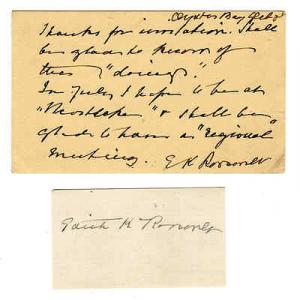 Oyster Bay
Thanks for invitation. Shall
be glad to
these "doings".
In July I hope to be at
& shall be
glad to have a "Regional
meeting.
E K Roosevelt
Edith K Roosevelt